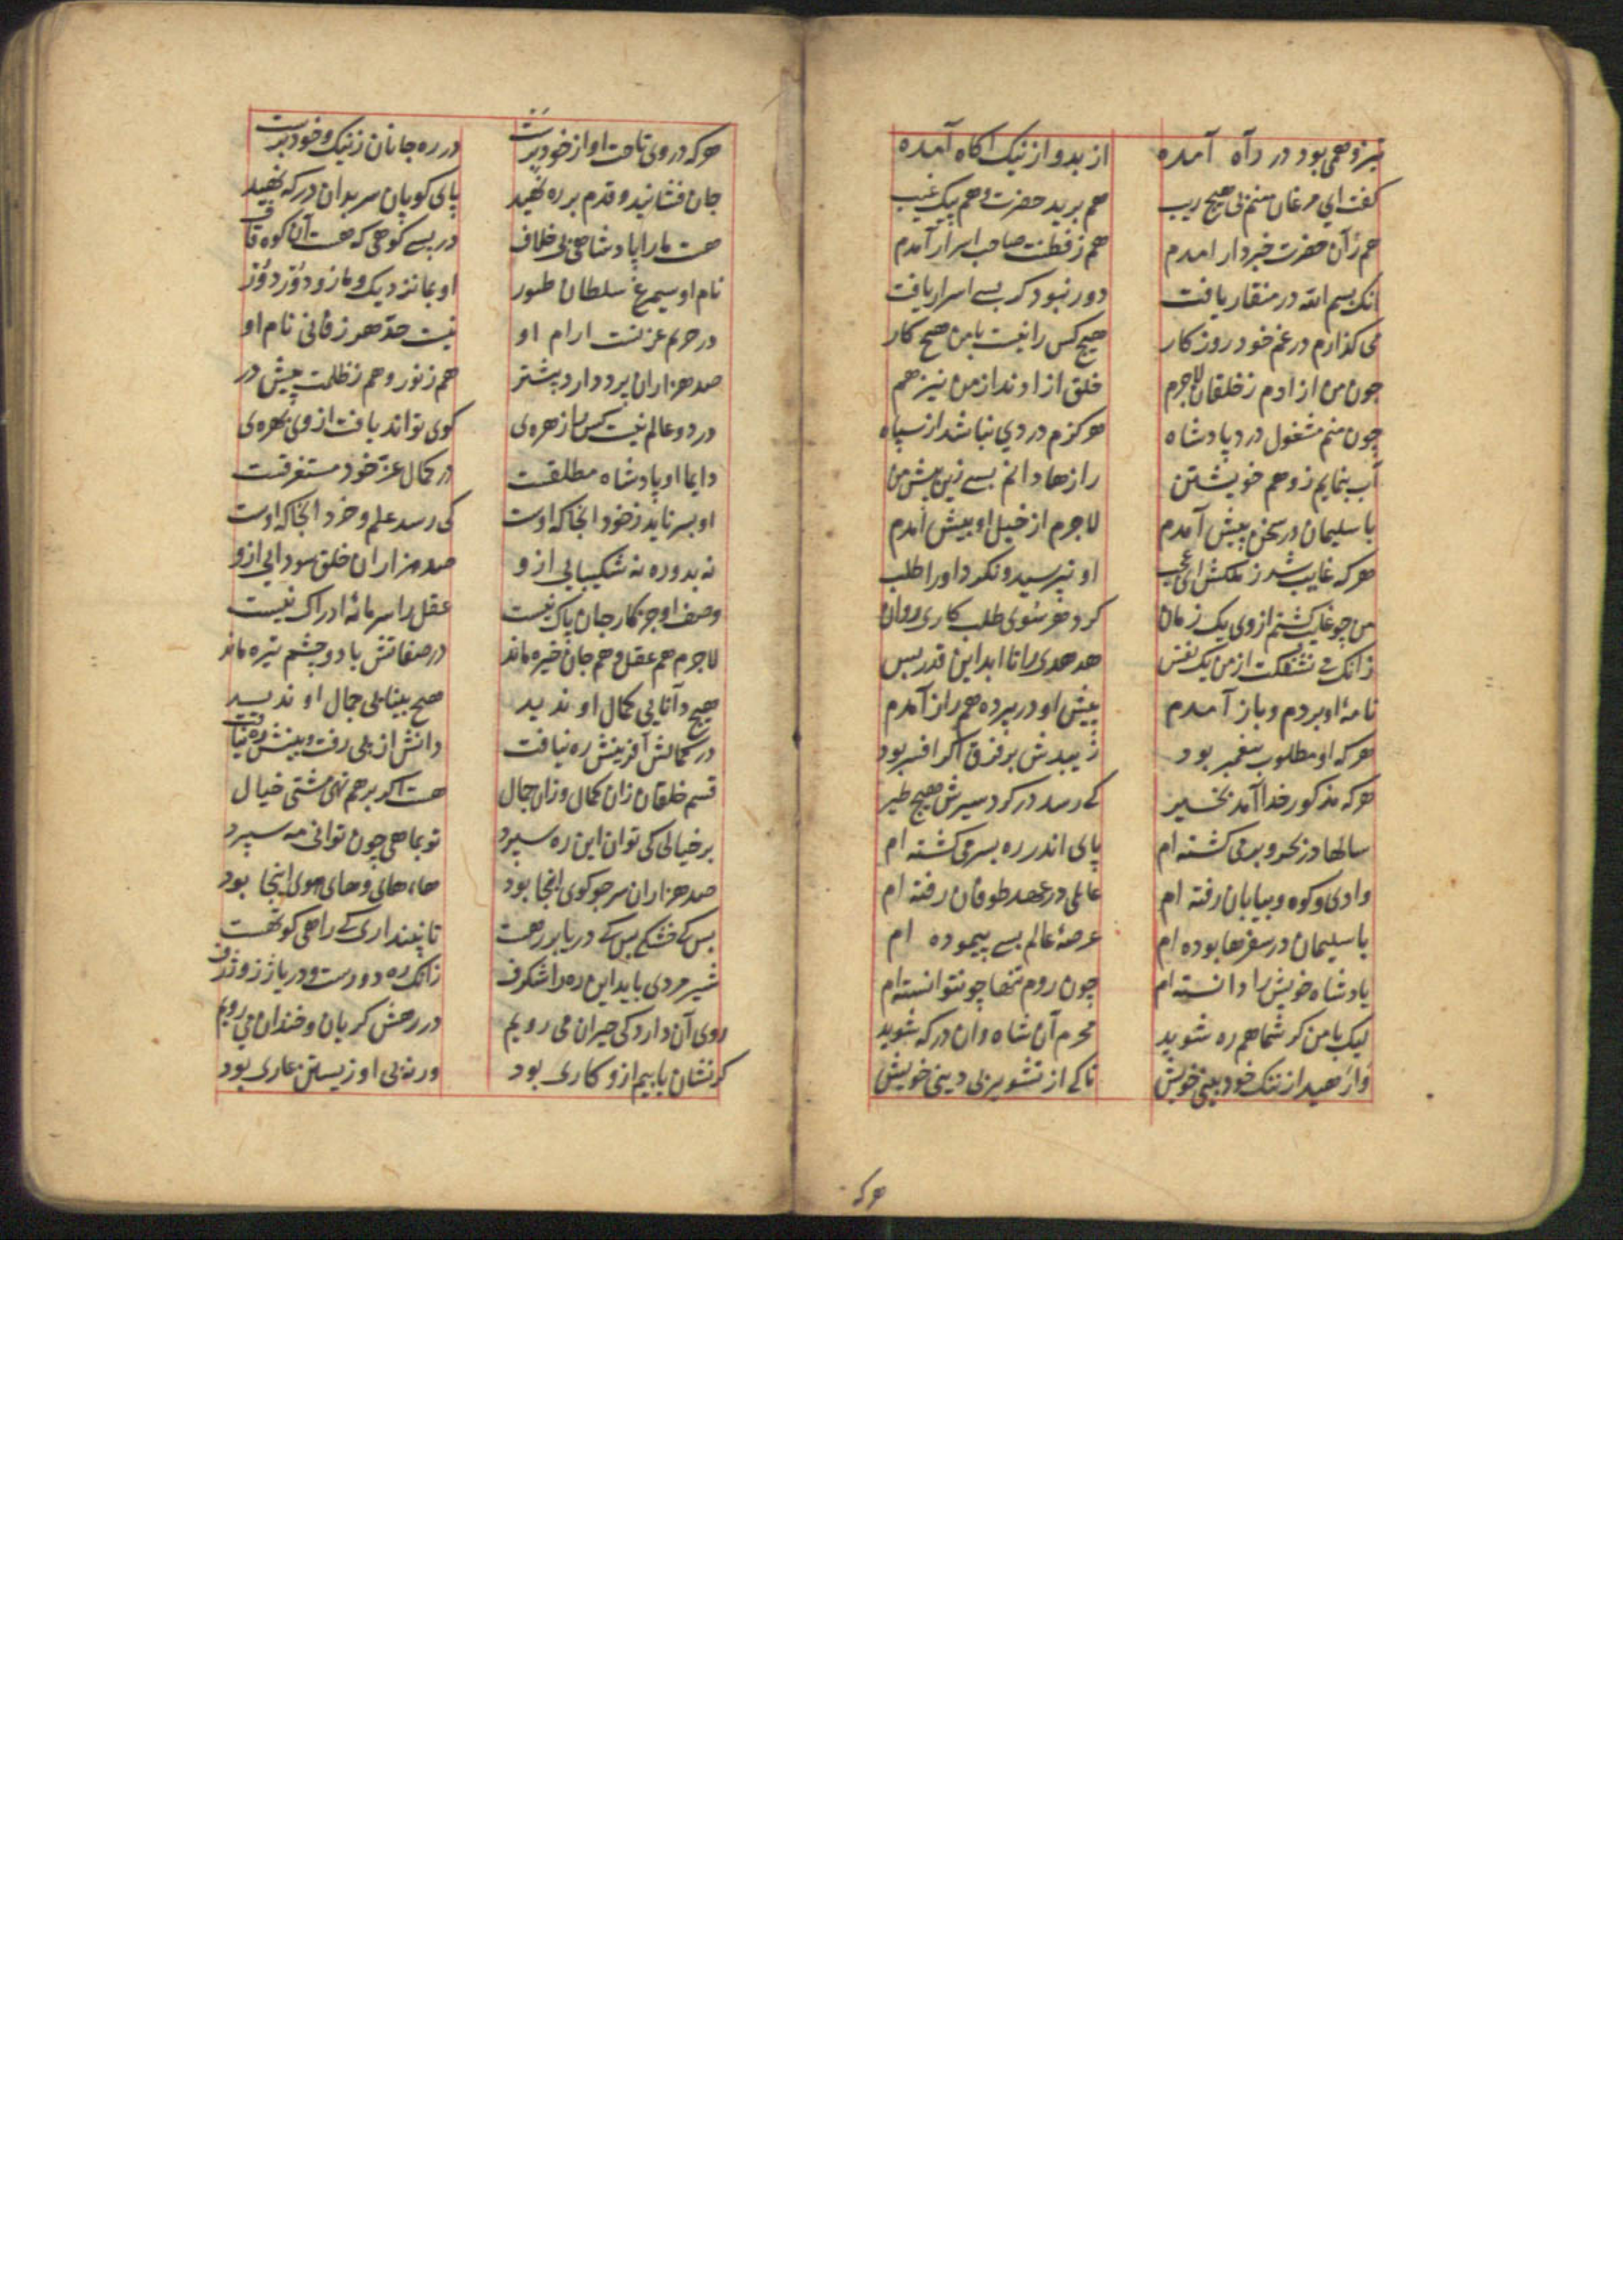 تیزوهمی بود در راه آمده از بد و از نیک آگاه آمده
گفت ای مرغان منم بی هیچ ریب هم برید حضرت و هم پیک غیب
هم زآن حضرت خبردار امدم هم ز فطنت صاحب اسرار آمدم
انک بسم الله در منقار یافت دور نبود کر بسی اسرار یافت
می کذارم در غم خود روزکار هیچ کس را نیست با من هیچ کار
چون من ازادم ز خلقان لاجرم خلق ازادند از من نیز هم
چون منم مشغول درد پادشاه هرکزم دردی نباشد از سپاه
آب بنمایم ز وهم خویشتن رازها دانم بسی زین بیش من
با سلیمان در سخن پیش آمدم لاجرم از خیل او بیش آمدم
هرکه غایب شد ز ملکش ای عجب او نپرسید و نکرد او را طلب
من چو غایب کشتم از وی یک زمان کرد هر سوی طلب کاری روان
زانک می نشکفت از من یک نفس هدهدی را تا ابد این قدر بس
نامهٔ او بردم و باز آمدم پیش او در پرده هم راز آمدم
هرکه او مطلوب پیغمبر بود زیبدش بر فرق اکر افسر بود
هرکه مذکور خدا آمد بخیر کی رسد در کرد سیرش هیچ طیر
سالها در بحر و بر می کشته ام پای اندر ره بسر می کشته ام
وادی و کوه و بیابان رفته ام عالمی در عهد طوفان رفته ام
با سلیمان در سفرها بوده ام عرصهٔ عالم بسی پیموده ام
پادشاه خویش را دانسته ام چون روم تنها چو نتوانسته ام
لیک با من کر شما همره شوید محرم آن شاه وان درکه شوید
وارهید از ننک خودبینی خویش تا کی از تشویر بی دینی خویش
هرکه
هرکه در وی باخت او از خود برست در ره جانان ز نیک و خود برست
جان فشانید و قدم بر ره نهید پای کوبان سر بدان درکه نهید
هست ما را پادشاهی بی خلاف در پس کوهی که هست آن کوه قاف
نام او سیمرغ سلطان طیور او بما نزدیک و ما زو دور دور
در حریم عزتست ارام او نیست حد هر زفانی نام او
صد هزاران پرده دارد بیشتر هم ز نور و هم ز ظلمت پیش در
در دو عالم نیست کس را زهره‌ی کوی تواند یافت از وی بهره‌ی
دایما او پادشاه مطلقست در کمال عز خود مستغرقست
او بسر ناید ز خود انجا که اوست کی رسد علم و خرد انجا که اوست
نه بدو ره نه شکیبایی ازو صد هزاران خلق سودایی ازو
وصف او جز کار جان پاک نیست عقل را سرمایهٔ ادراک نیست
لاجرم هم عقل و هم جان خیره ماند در صفاتش با دو چشم تیره ماند
هیچ دانایی کمال او ندید هیچ بینایی جمال او ندید
در کمالش آفرینش ره نیافت دانش از پی رفت و بینش ره نیافت
قسم خلقان زان کمال و زان جمال هست اکر بر هم نهی مشتی خیال
بر خیالی کی توان این ره سپرد تو بماهی چون توانی مه سپرد
صد هزاران سر چو کوی انجا بود های های و های هوی انجا بود
بس که خشکی بس که دریا بر رهست تا نپنداری که راهی کوتهست
شیرمردی باید این ره را شکرف زانک ره دورست و دریا ژرف ژرف
روی آن دارد کی حیران می رویم در رهش کریان و خندان می رویم
کر نشان یابیم ازو کاری بود ورنه بی او زیستن عاری بود